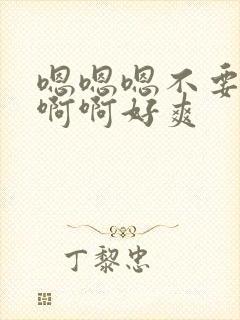 嗯嗯嗯不要
啊啊好爽
丁黎忠